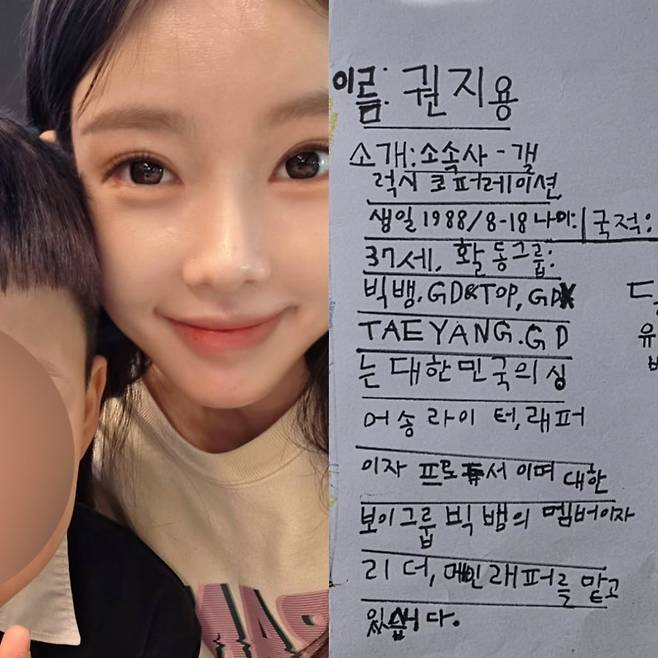 이름: 권지용
소개:소속사-갤
럭시 코퍼레이션
생일 1988/8-18 나이:
국적:
37세, 활동그룹:
빅뱅.GD&TOP, GDX
TAEYANG.GD
는 대한민국의 싱
어송라이터,래퍼
이자 프로듀서이며 대한
보이그룹 빅뱅의 멤버이자
리더, 메인래퍼를 맡고
있습니다.
유